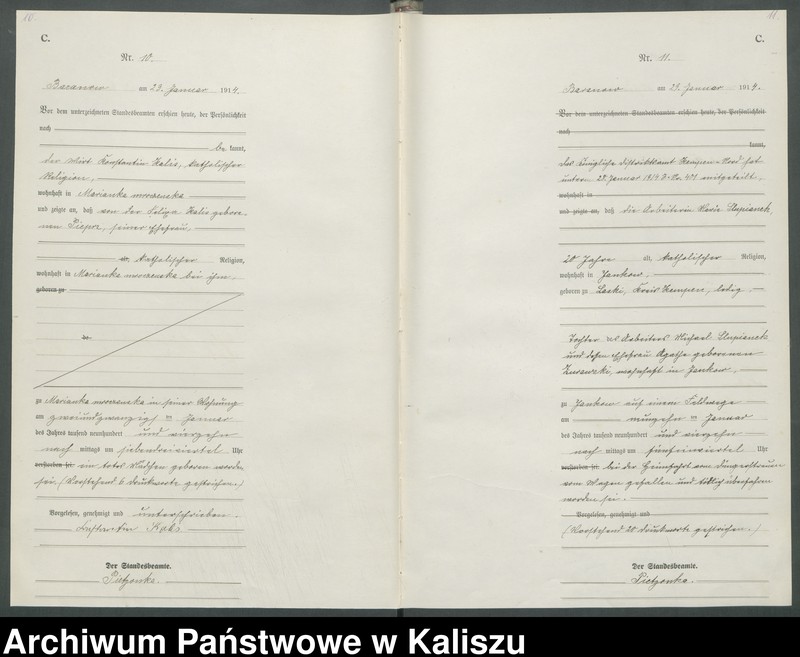 10.
C.
Nr. 10.
Baranow am 23. Januar 1914.
Vor dem unterzeichneten Standesbeamten erschien heute, der Persönlichkeit
nach
be kannt,
der Wirt Konstantin Kalis, katholischer
Religion,
wohnhaft in Marianka mroczenska
und zeigte an, daß von der Kalis gebore-
nen Pieprz, seiner Ehefrau,
alt, katholischer Religion,
wohnhaft in Marianka mroczenska bei ihm,
geboren zu
de
zu Marianka mroczenska in seiner Wohnung
am zweiundzwanzig ten Januar
des Jahres tausend neunhundert und vierzehn
nach mittags um siebendreiviertel Uhr
verstorben sei. ein totes Mädchen geboren worden
sei. (Vorstehend 6 Druckworte gestrichen.)
Vorgelesen, genehmigt und unterschrieben.
Der Standesbeamte.
Pietzonka.
11.
C.
Nr. 11.
Baranow am 29. Januar 1914.
Vor dem unterzeichneten Standesbeamten erschien heute, der Persönlichkeit
nach
kannt,
Das Königliche Distriktsamt Kempen-Nord hat
unter 28. Januar 1914 J.-No. 401 mitgeteilt,
wohnhaft in
und zeigte an, daß die Arbeiterin Maria Slupianek,
20 Jahre alt, katholischer Religion,
wohnhaft in Jankow,
geboren zu Laski, Kreis Kempen, ledig.
Tochter des Arbeiters Michael Slupianek
und dessen Ehefrau Agathe geborenen
Zurawski, wohnhaft in Jankow,
zu Jankow auf einem Feldwege
am neunzehn ten Januar
des Jahres tausend neunhundert und vierzehn
nach mittags um fünfeinviertel Uhr
verstorben sei. bei der Heimfahrt vom Dungerstreuen
vom Wagen gefallen und tötlich überfahren
worden sei.
Vorgelesen, genehmigt und
(Vorstehend 20 Druckworte gestrichen.)
Der Standesbeamte.
Pietzonka.
Archiwum Państwowe w Kaliszu